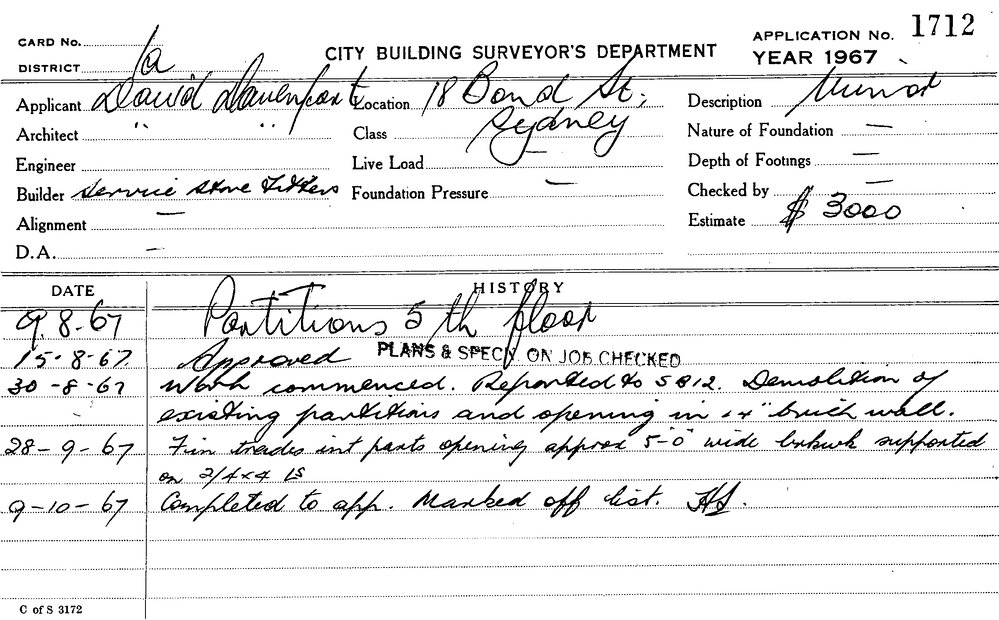 CARD No.
APPLICATION No. 1712
DISTRICT 1a
CITY BUILDING SURVEYOR'S DEPARTMENT
YEAR 1967
Applicant David Davenport
Location 18 Bond St;
Sydney
Description Minor
Architect " "
Class
Nature of Foundation —
Engineer
Live Load —
Depth of Footings —
Builder Service Store Fitters
Foundation Pressure —
Checked by —
Alignment —
Estimate $ 3000
D.A. —
DATE HISTORY
9.8.67 Partitions 5th floor
15-8-67. Approved PLANS & SPECN. ON JOB CHECKED
30-8-67 Work commenced. Reported to S 812. Demolition of
existing partitions and opening in 14" brick wall.
28-9-67 Fin trades int parts opening approx 5'-0" wide brkwk supported
on 2/4x4 LS
9-10-67 Completed to app. Marked off list. HS.
C of S 3172